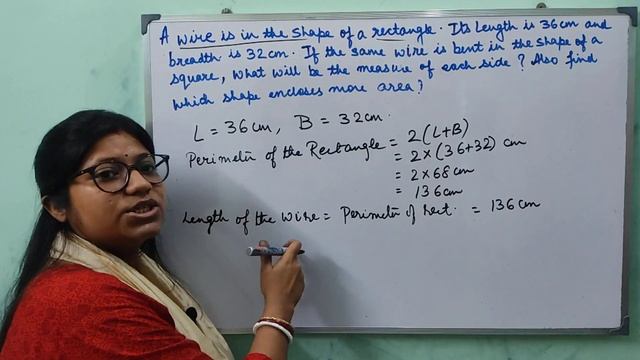 A wire is in the shape of a rectangle. Its Length is 36 cm and
breadth is 32 cm. If the same wire is bent in the shape of a
square, what will be the measure of each side? Also find
which shape encloses more area?
L = 36 cm, B = 32 cm.
Perimeter of the Rectangle = 2(L+B)
= 2 × (36+32) cm
= 2 × 68 cm
= 136 cm
Length of the wire = Perimeter of Rect. = 136 cm